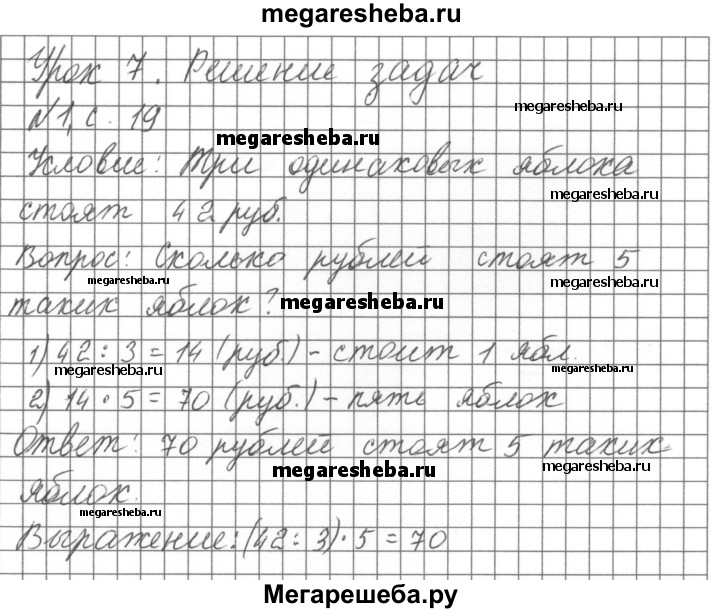 megaresheba.ru
Урок 7. Решение задач
megaresheba.ru
№1, с. 19
megaresheba.ru
Условие: Три одинаковых яблока
megaresheba.ru
стоят 42 руб.
Вопрос: Сколько рублей стоят 5
megaresheba.ru megaresheba.ru
таких яблок? megaresheba.ru
1) 42 : 3 = 14 (руб.) – стоит 1 ябл.
megaresheba.ru megaresheba.ru
2) 14 · 5 = 70 (руб.) – пять яблок
Ответ: 70 рублей стоят 5 таких
megaresheba.ru megaresheba.ru
яблок.
megaresheba.ru
Выражение: (42 : 3) · 5 = 70
Мегарешеба.ру